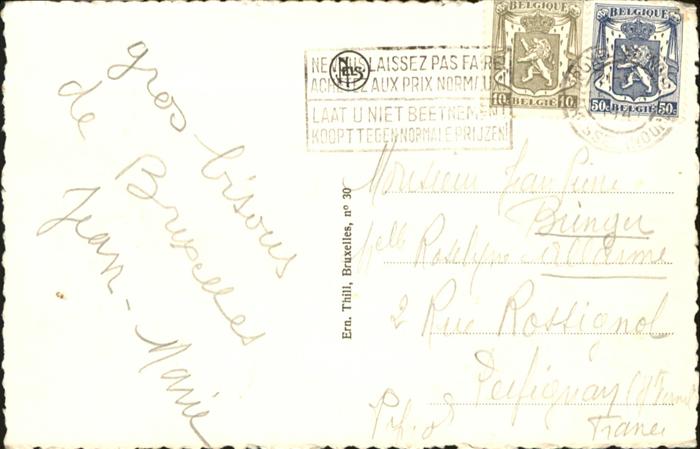 gros bisous
de Bruxelles
Jean-Marie
NE VOUS LAISSEZ PAS FAIRE
ACHETEZ AUX PRIX NORMAUX
LAAT U NIET BEETNEMEN
KOOPT TEGEN NORMALE PRIJZEN!
Nels
BELGIQUE
10c BELGIË 10c
BELGIQUE
50c BELGIË 50c
Ern. Thill, Bruxelles, n° 30
Monsieur Jean Pierre
Melle Roselyne
2 Rue Rossignol
France